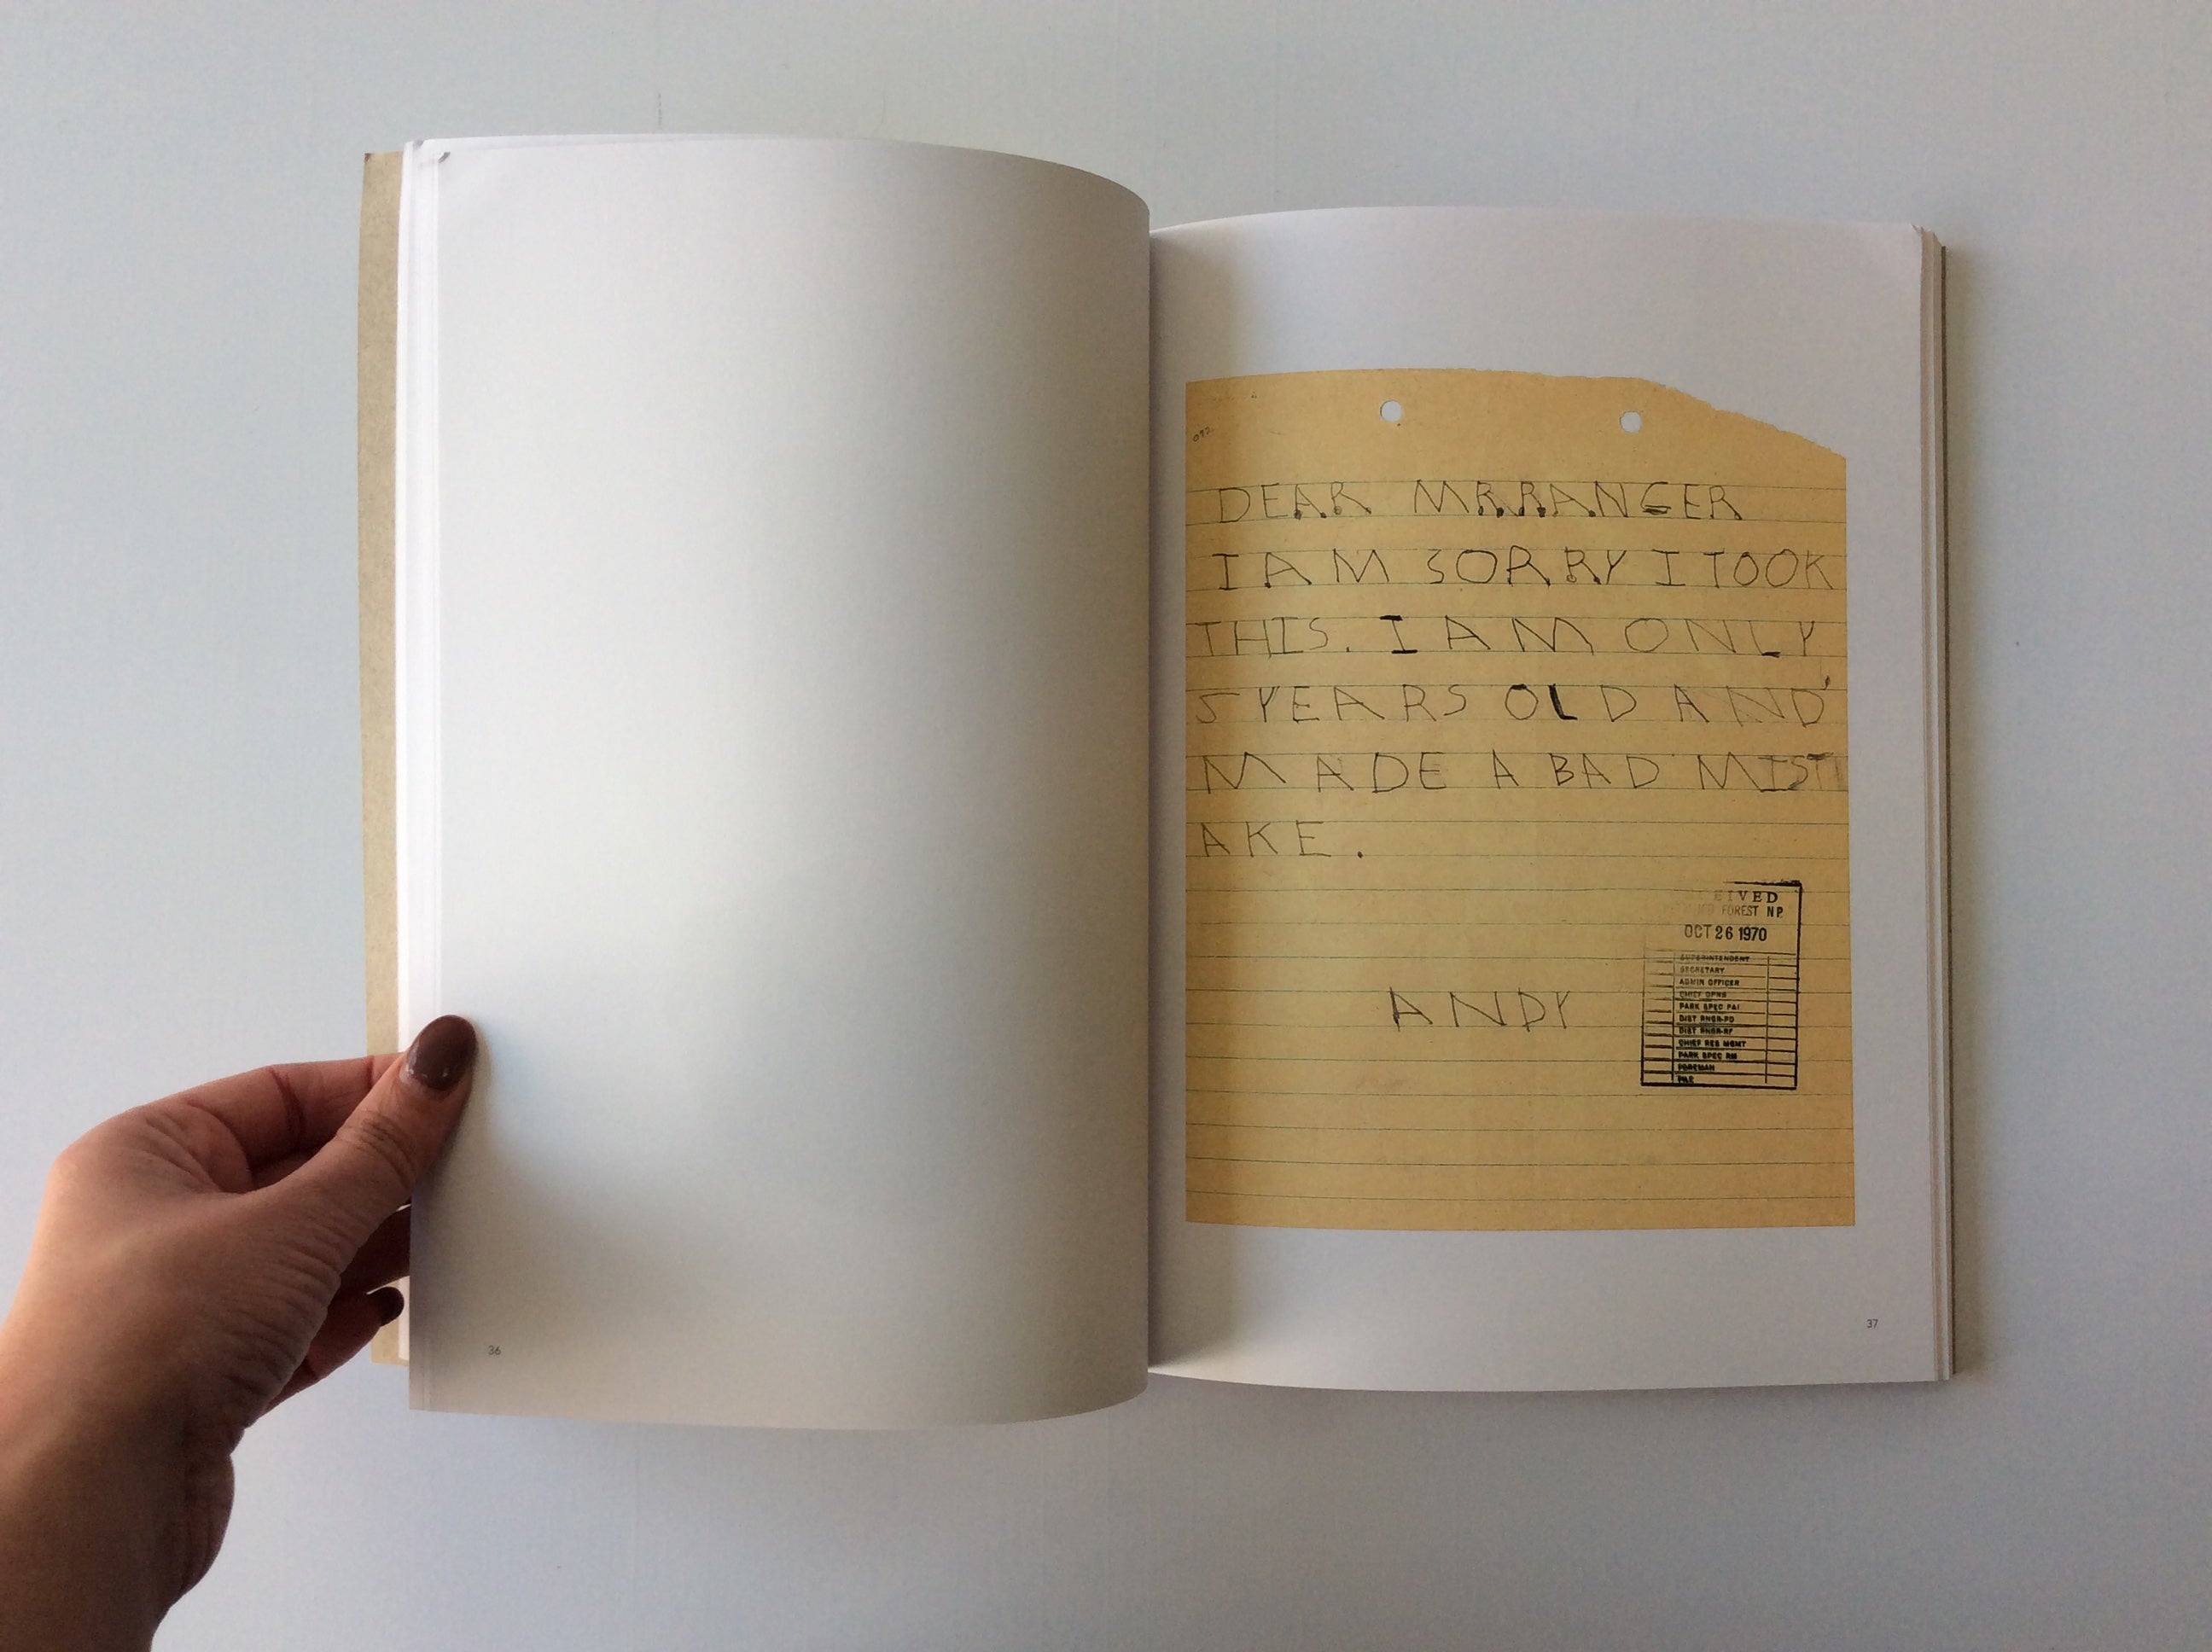 092
DEAR MR RANGER
I AM SORRY I TOOK
THIS. I AM ONLY
5 YEARS OLD AND
MADE A BAD MIST
AKE.
ANDY
FOREST NP
OCT 26 1970
SUPERINTENDENT
SECRETARY
ADMIN OFFICER
CHIEF OPNS
PARK SPEC PAI
DIST RNGR-PD
DIST RNGR-RF
CHIEF RES MGMT
PARK SPEC RM
FOREMAN
FILE
36
37